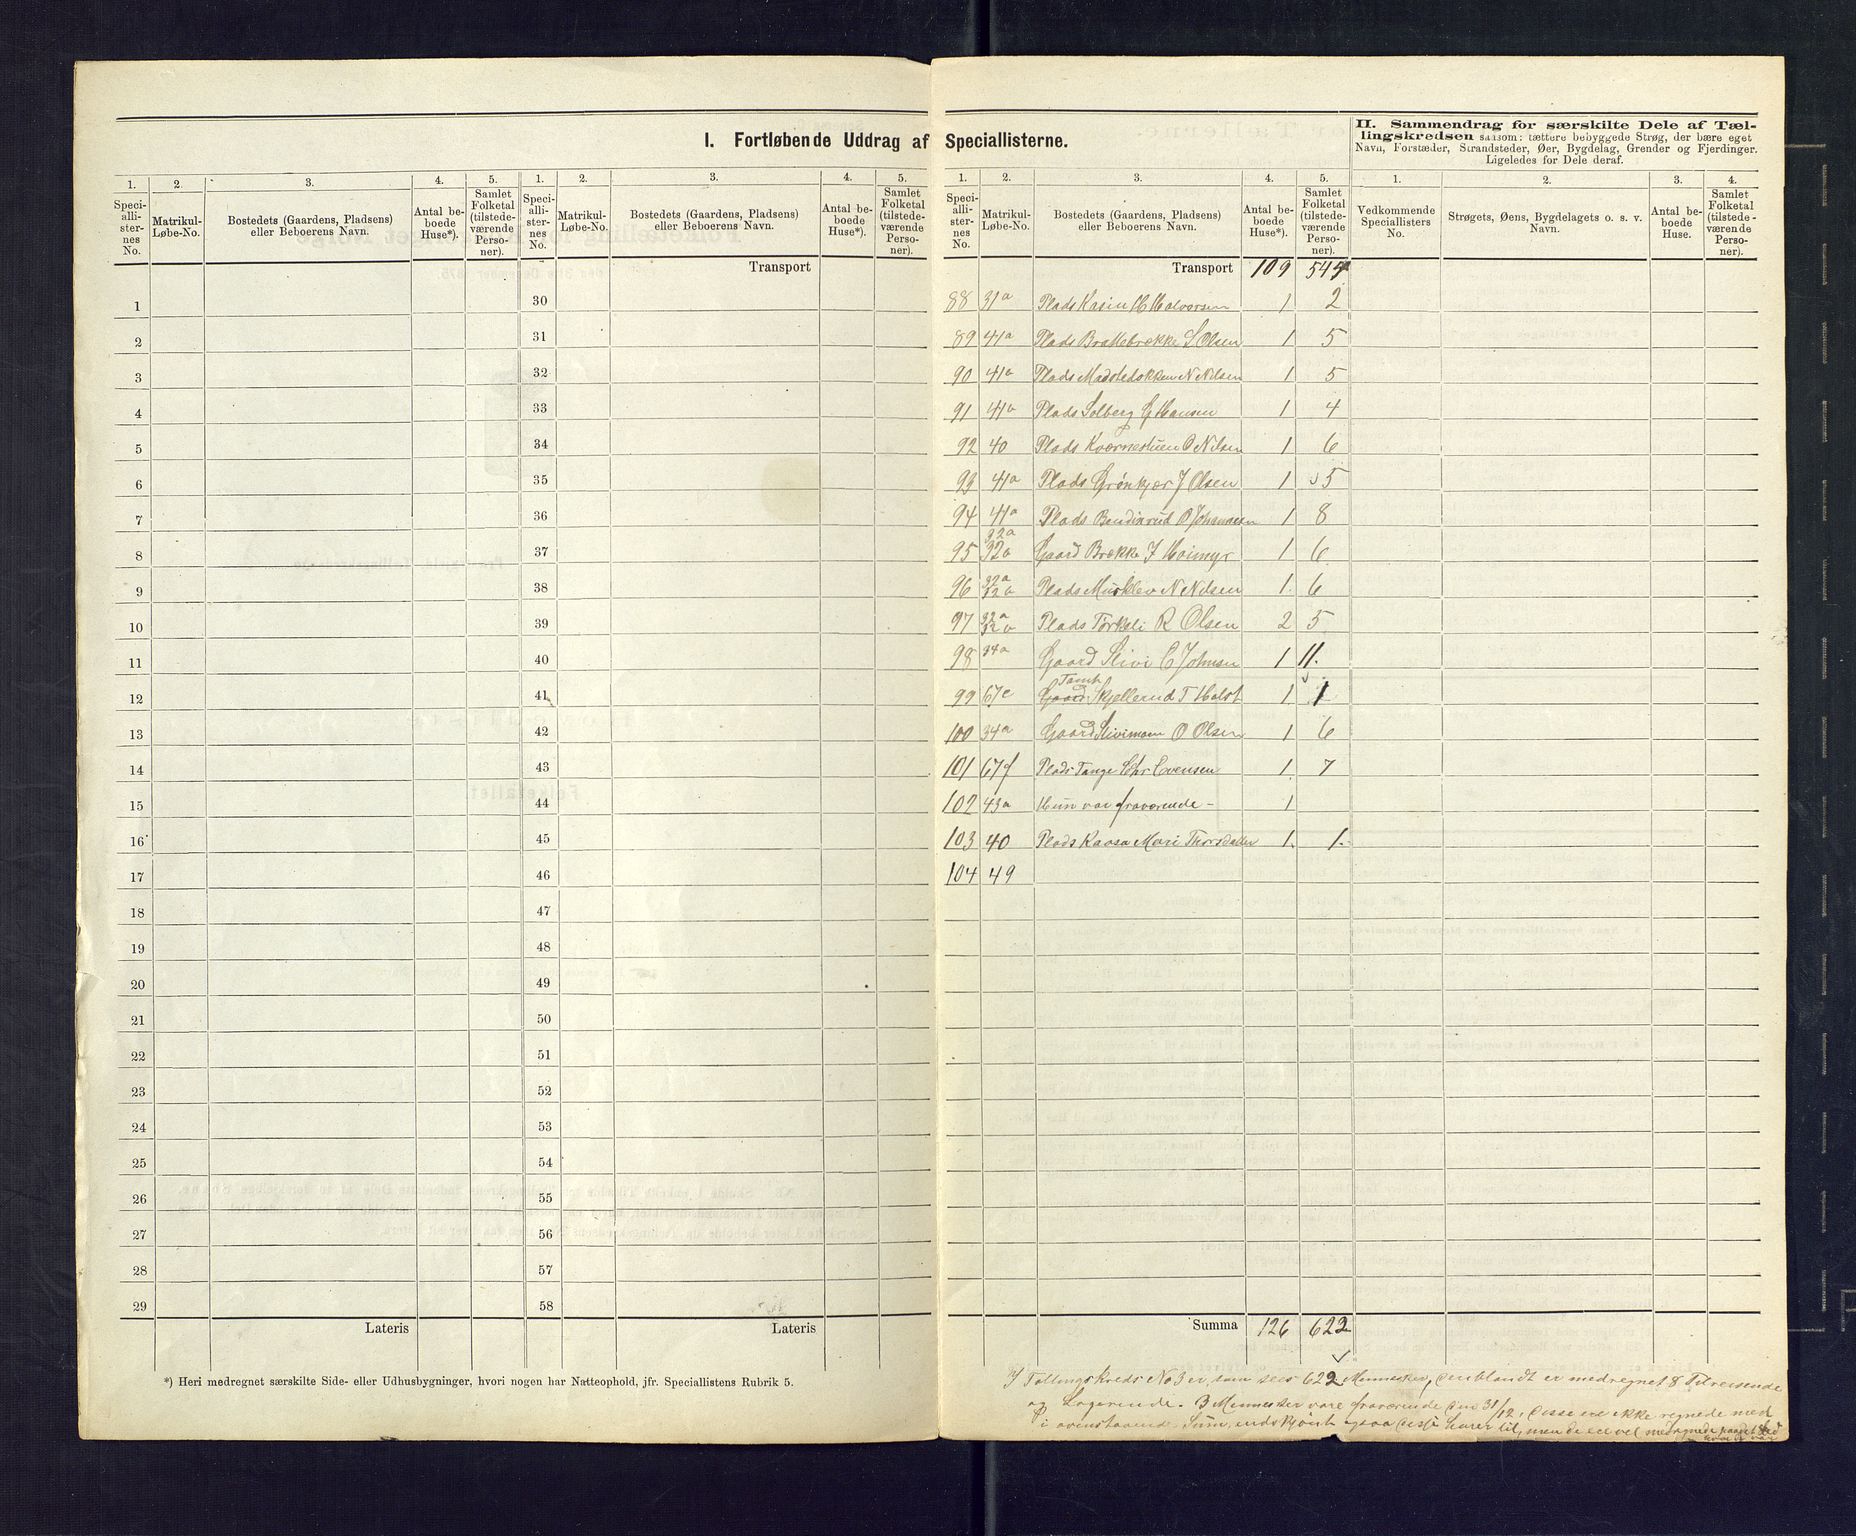 I. Fortløbende Uddrag af Speciallisterne.
II. Sammendrag for særskilte Dele af Tæl-
lingskredsen saasom: tættere bebyggede Strøg, der bære eget
Navn, Forstæder, Strandsteder, Øer, Bygdelag, Grender og Fjerdinger.
Ligeledes for Dele deraf.
1. 2. 3. 4. 5. 1. 2. 3. 4. 5.
Speci-alli-ster-nes No. Matrikul-Løbe-No. Bostedets (Gaardens, Pladsens) eller Beboerens Navn. Antal be-boede Huse*). Samlet Folketal (tilstede-værende Perso-ner). Speci-alli-ster-nes No. Matrikul-Løbe-No. Bostedets (Gaardens, Pladsens) eller Beboerens Navn. Antal be-boede Huse*). Samlet Folketal (tilstede-værende Perso-ner).
Transport
1 30
2 31
3 32
4 33
5 34
6 35
7 36
8 37
9 38
10 39
11 40
12 41
13 42
14 43
15 44
16 45
17 46
18 47
19 48
20 49
21 50
22 51
23 52
24 53
25 54
26 55
27 56
28 57
29 58
Lateris Lateris
*) Heri medregnet særskilte Side- eller Udhusbygninger, hvori nogen har Natteophold, jfr. Speciallistens Rubrik 5.
1. 2. 3. 4. 5. 1. 2. 3. 4.
Speci-alli-ster-nes No. Matrikul-Løbe-No. Bostedets (Gaardens, Pladsens) eller Beboerens Navn. Antal be-boede Huse*). Samlet Folketal (tilstede-værende Perso-ner). Vedkommende Speciallisters No. Strøgets, Øens, Bygdelagets o. s. v. Navn. Antal be-boede Huse. Samlet Folketal (tilstede-værende Perso-ner).
Transport 109
88 31a Plads Kasin H Halvorsen 1 2
89 41a Plads Brattebrække S Olsen 1 5
90 41a Plads N Nilsen 1 5
91 41a Plads Solberg G Hansen 1 4
92 40 Plads Kværnestuen O Nilsen 1 6
93 41a Plads Grønkjær J Olsen 1 5
94 41a Plads Bendixrud O Johannesen 1 8
95 32a 32a Gaard Brække J Hoimyr 1 6
96 32a 32a Plads Mürklev N Nilsen 1. 6
97 32a 32a Plads Tørkeli R Olsen 2 5
98 34a Gaard Slivi C Johnsen 1 11.
99 67e Gaard Tomt Skjellerud T Holst 1. 1
100 34a Gaard Slivimoen O Olsen 1 6
101 67f Plads Tange Chr Evensen 1. 7
102 43a Hün var fraværende - 1
103 40 Plads Kaasa Mari Thorsdatter 1. 1.
104 49
Summa 126 622
I Tællingskreds No 3 er, som sees 622 Mennesker, deriblandt er medregnet 8 Tilreisende
og Logerende. 3 Mennesker vare fraværende den 31/12, disse ere ikke regnede med
i ovenstaaende Süm, endskjønt disse hører til, men de ere vel medregnede paa det Sted
hvor de var